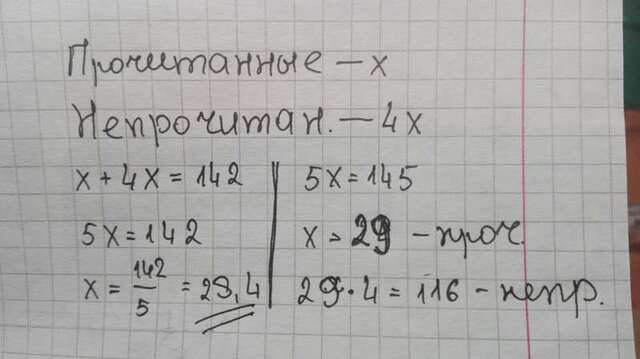 Прочитанные – x
Непрочитан. – 4x
x + 4x = 142
5x = 142
x = 142/5 = 28,4
5x = 145
x = 29 – проч.
29 · 4 = 116 – непр.